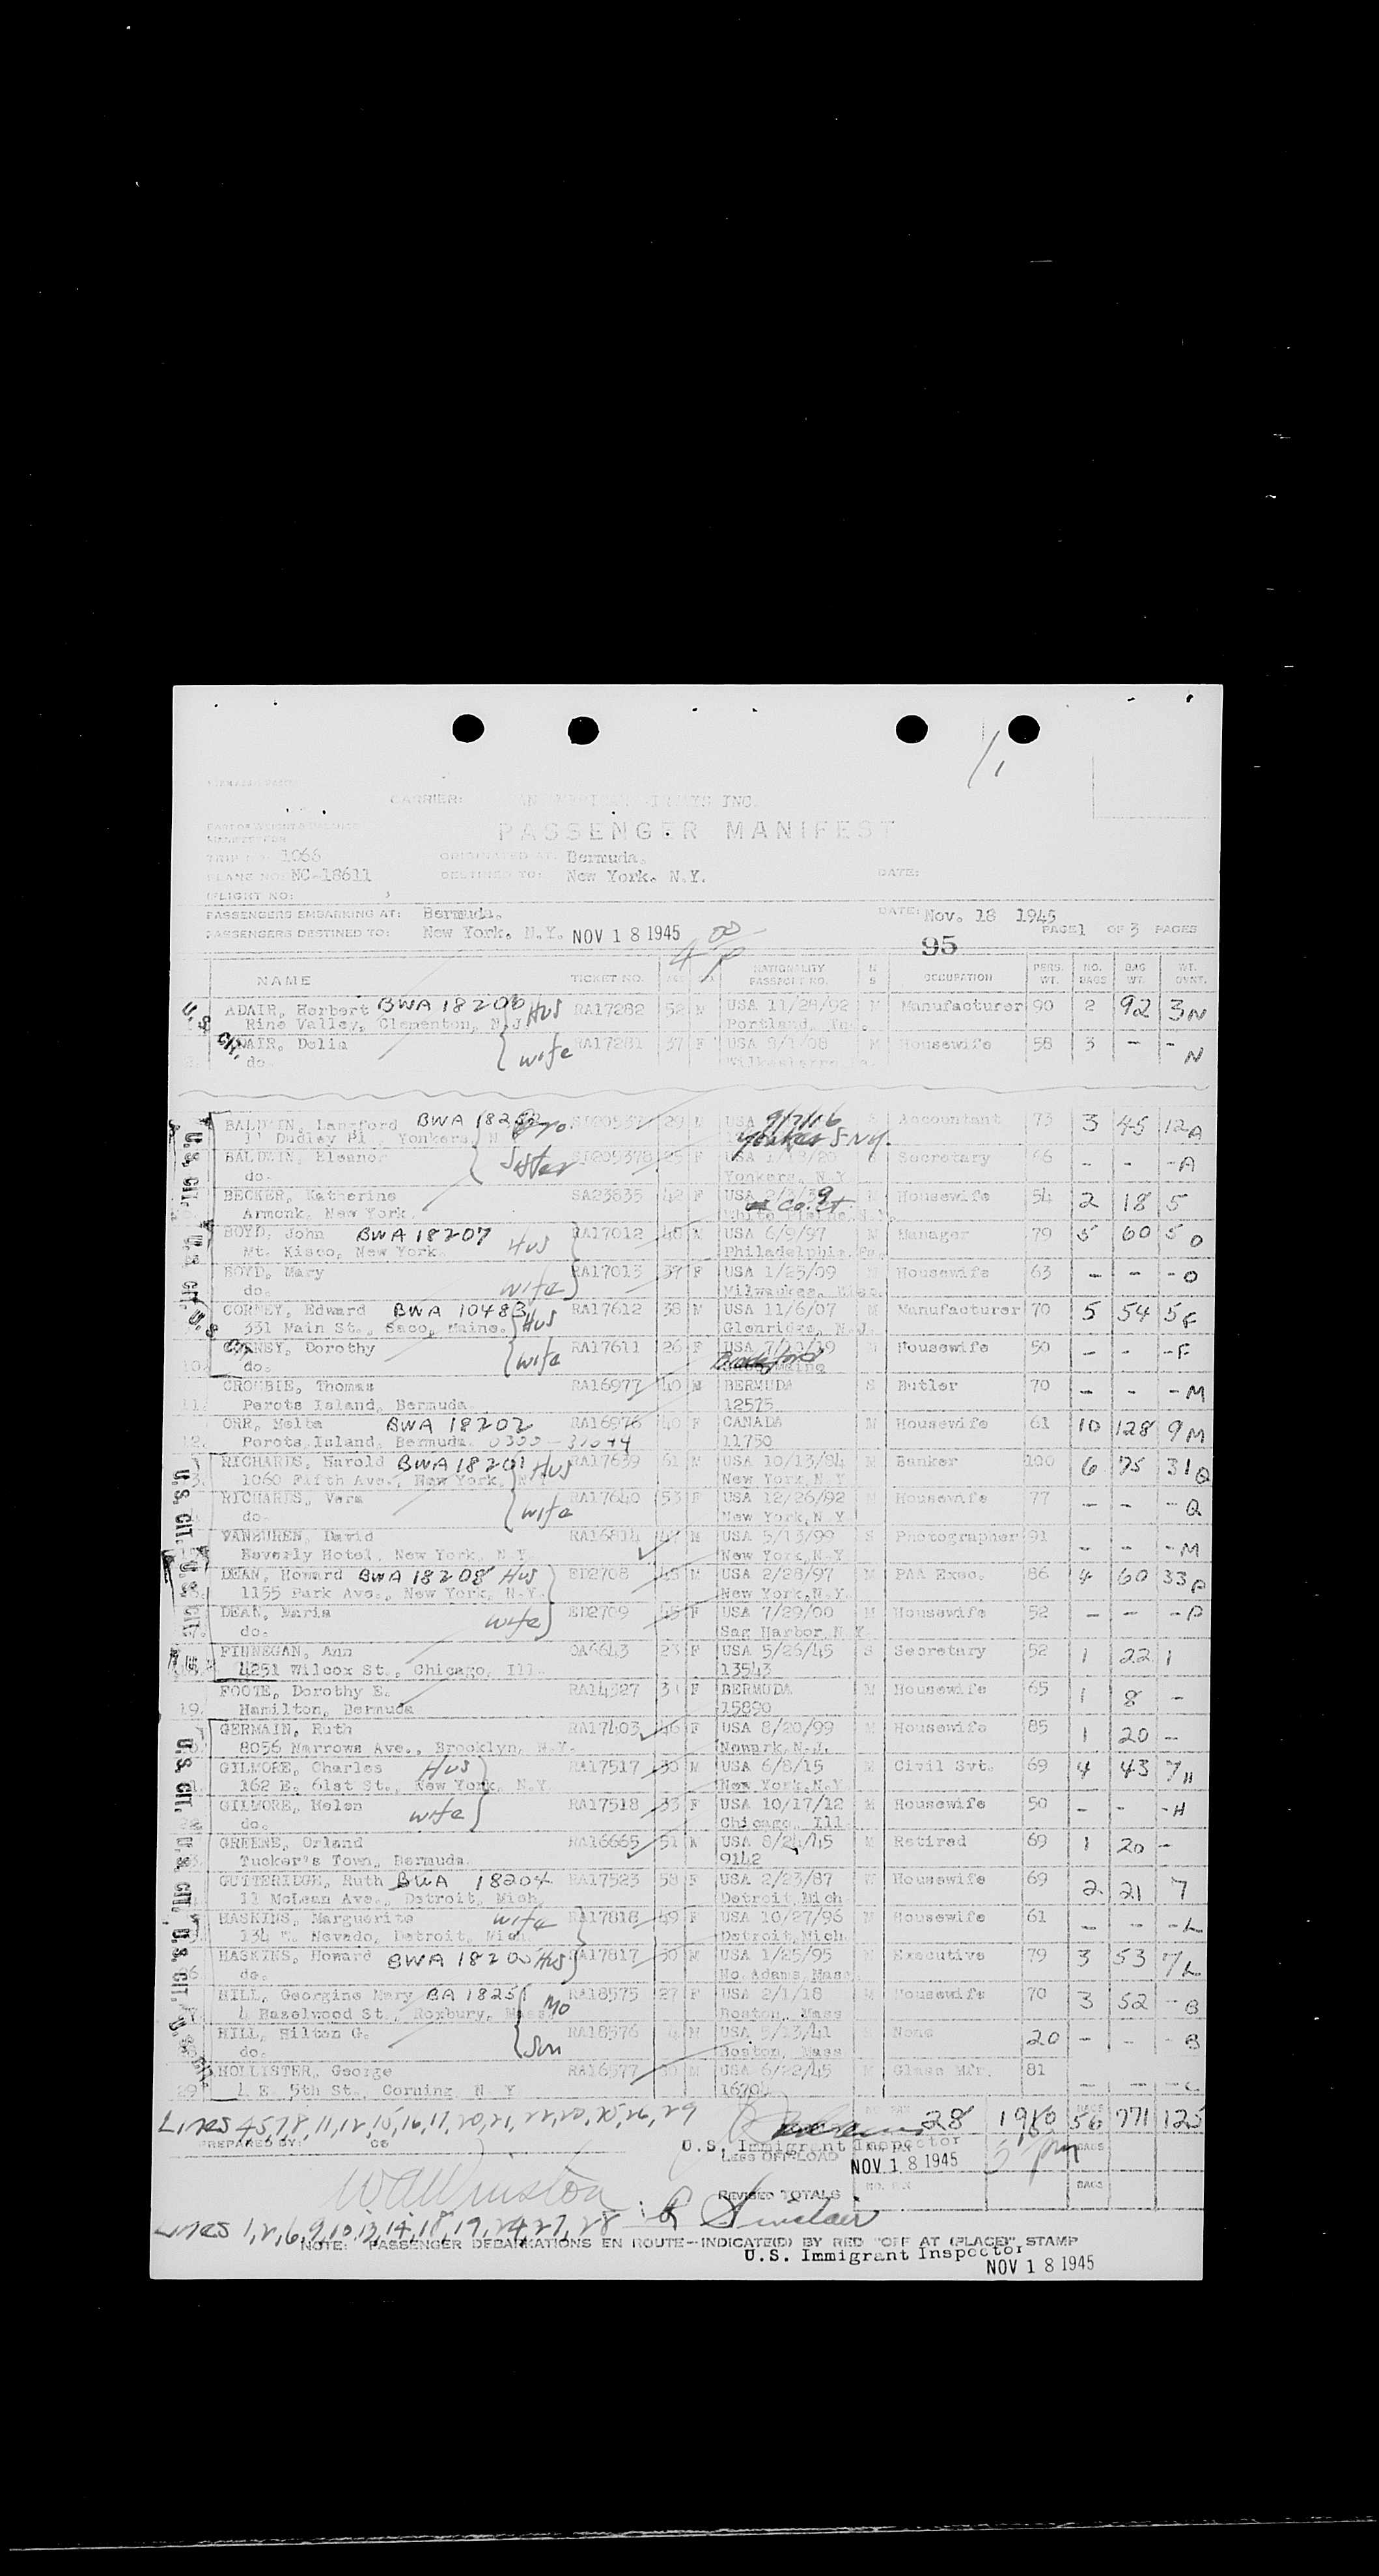 CARRIER: AN AMERICAN AIRWAYS INC.
PASSENGER MANIFEST
TRIP NO. 1066 ORIGINATED AT: Bermuda.
PLANE NO. NC-18611 DESTINED TO: New York. N.Y. DATE:
(FLIGHT NO: )
PASSENGERS EMBARKING AT: Bermuda. DATE: Nov. 18 1945
PASSENGERS DESTINED TO: New York. N.Y. NOV 18 1945 PAGE 1 OF 3 PAGES
95
NAME TICKET NO. AGE SEX NATIONALITY PASSPORT NO. M S OCCUPATION PERS. WT. NO. BAGS BAG WT. WT. OVWT.
ADAIR, Herbert BWA 18206 Hus RA17282 52 M USA 11/28/92 M Manufacturer 90 2 92 3 N
Pine Valley, Clementon, N.J. Portland,
ADAIR, Delia wife RA17281 37 F USA 8/1/08 M Housewife 58 3 - - N
do.
BALDWIN, Langford BWA 18252 Bro. 29 M USA 9/7/16 S Accountant 73 3 45 12 A
Dudley Pl., Yonkers, N Yonkers N.Y.
BALDWIN, Eleanor Sister ST205378 25 F USA 1/18/20 S Secretary 66 - - - A
do. Yonkers, N.Y.
BECKER, Katherine SA23835 42 F USA Housewife 54 2 18 5
Armonk, New York.
BOYD, John BWA 18207 Hus RA17012 48 M USA 6/9/97 M Manager 79 5 60 5 O
Mt. Kisco, New York. Philadelphia, Pa.
BOYD, Mary wife RA17013 37 F USA 1/25/09 M Housewife 63 - - - O
do. Milwaukee, Wisc.
CORNEY, Edward BWA 10483 Hus RA17612 38 M USA 11/6/07 M Manufacturer 70 5 54 5 F
331 Main St., Saco, Maine. Glenridge, N.J.
CORNEY, Dorothy wife RA17611 26 F USA M Housewife 50 - - - F
do.
CROMBIE, Thomas RA16977 40 M BERMUDA S Butler 70 - - - M
Perots Island, Bermuda 12575
ORR, Melba BWA 18202 RA16976 40 F CANADA M Housewife 61 10 128 9 M
Perots Island, Bermuda. 11750
RICHARDS, Harold BWA 18201 Hus RA17639 61 M USA 10/13/84 M Banker 100 6 75 31 Q
1060 Fifth Ave., New York, N.Y. New York, N.Y
RICHARDS, Vera wife RA17640 53 F USA 12/26/92 M Housewife 77 - - - Q
do. New York, N.Y
VANBUREN, David RA16814 47 M USA 5/13/99 S Photographer 91 - - - M
Beverly Hotel, New York, N.Y. New York, N.Y
DEAN, Howard BWA 18208 Hus ED2708 48 M USA 2/28/97 M PAA Exec. 86 4 60 33 P
1155 Park Ave., New York, N.Y. New York, N.Y.
DEAN, Maria wife ED2709 45 F USA 7/29/00 M Housewife 52 - - - P
do. Sag Harbor, N.Y.
FINNEGAN, Ann OA6643 23 F USA 5/26/45 S Secretary 52 1 22 1
4251 Wilcox St., Chicago, Ill. 13543
FOOTE, Dorothy E. RA14327 F BERMUDA M Housewife 65 1 8 -
19. Hamilton, Bermuda 15890
GERMAIN, Ruth RA17403 46 F USA 8/20/99 M Housewife 85 1 20 -
8056 Narrows Ave., Brooklyn, N.Y. Newark, N.J.
GILMORE, Charles Hus RA17517 30 M USA 6/8/15 M Civil Svt. 69 4 43 7 H
162 E. 61st St., New York, N.Y. New York, N.Y
GILMORE, Helen wife RA17518 33 F USA 10/17/12 M Housewife 50 - - - H
do. Chicago, Ill
GREENE, Orland RA16665 51 M USA 8/24/45 M Retired 69 1 20 -
Tucker's Town, Bermuda 9142
GUTTERIDGE, Ruth BWA 18204 RA17523 58 F USA 2/23/87 W Housewife 69 2 21 7
11 McLean Ave., Detroit, Mich. Detroit, Mich
HASKINS, Marguerite wife RA17818 49 F USA 10/27/96 M Housewife 61 - - - L
134 W. Nevado, Detroit, Mich. Detroit, Mich
HASKINS, Howard BWA 18205 Hus RA17817 50 M USA 1/25/95 Executive 79 3 53 7 L
do. No. Adams, Mass
HILL, Georgine Mary BA 18251 Mo RA18575 27 F USA 2/1/18 M Housewife 70 3 52 - B
4 Hazelwood St., Roxbury, Mass. Boston, Mass
HILL, Hilton G. Son RA18576 4 M USA 5/13/41 None 20 - - - B
do. Boston, Mass
HOLLISTER, George RA16577 M USA 6/22/45 M Glass Mfr. 81 - - - C
29 4 E. 5th St., Corning, N.Y 16704
U.S. CIT.
Lines 4,5,7,8,11,12,15,16,17,20,21,22,23,25,26,29 28 1980 56 771 125
PREPARED BY: CS U.S. Immigrant Inspector
LESS OFFLOAD NOV 18 1945
REVISED TOTALS
Lines 1,2,6,9,10,13,14,18,19,24,27,28 Sinclair
NOTE: PASSENGER DEBARKATIONS EN ROUTE--INDICATE(D) BY RED "OFF AT (PLACE)" STAMP
U.S. Immigrant Inspector
NOV 18 1945